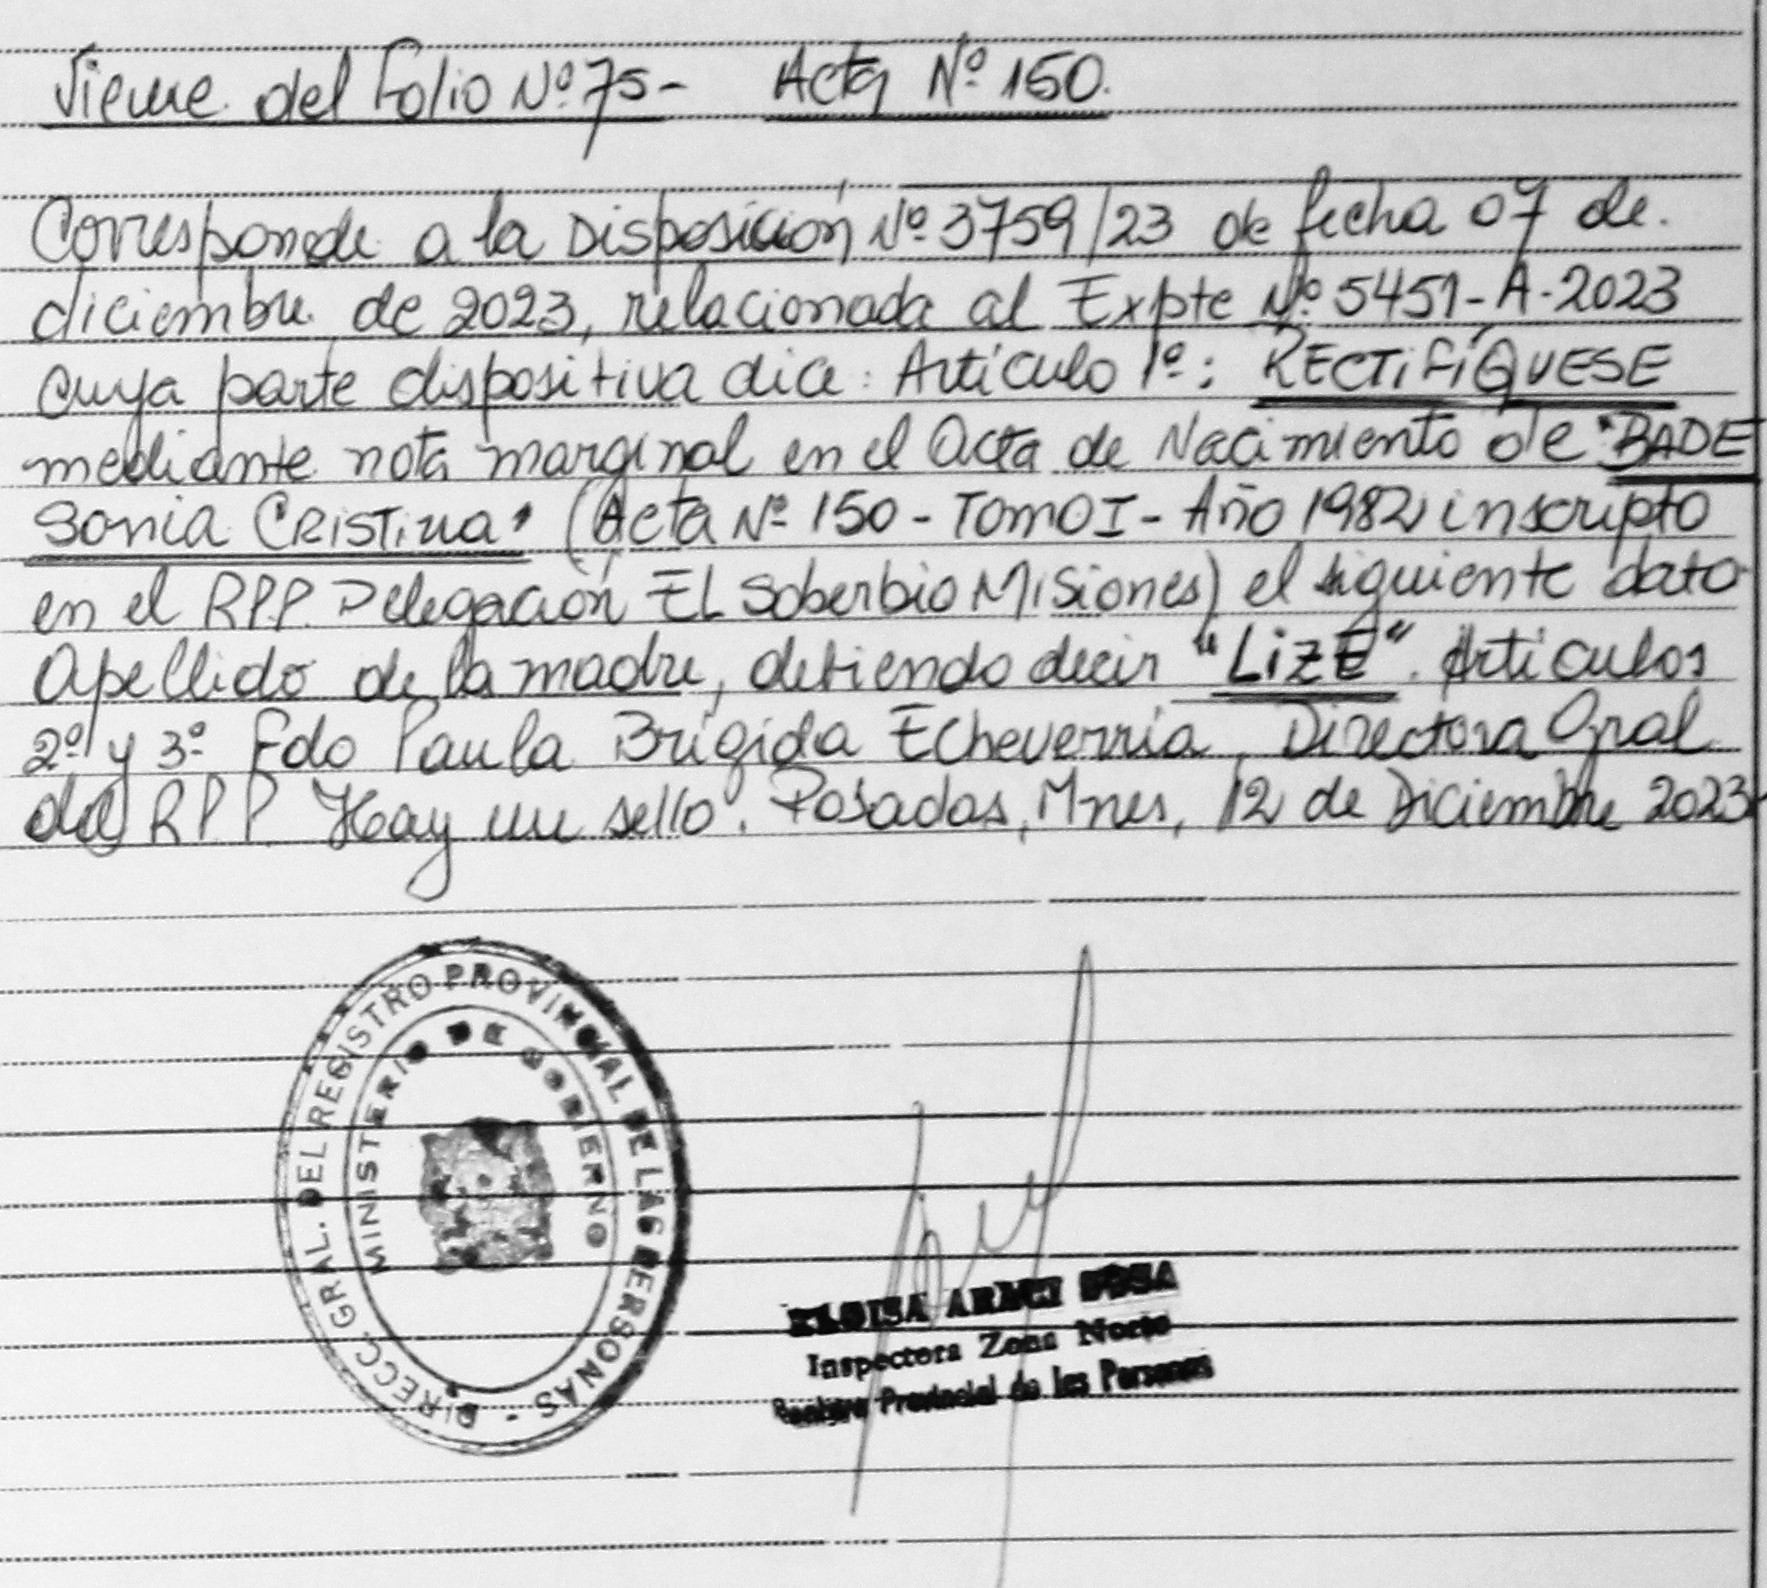 Viene del Folio Nº 75- Acta Nº 150.
Corresponde a la Disposición Nº 3759/23 de fecha 07 de.
diciembre de 2023, relacionada al Expte Nº 5451-A-2023
cuya parte dispositiva dice: Artículo 1º: RECTIFÍQUESE
mediante nota marginal en el Acta de Nacimiento de "BADE
Sonia CRISTINA" (Acta Nº 150 - TOMO I - Año 1982 inscripto
en el R.P.P. Delegación EL Soberbio Misiones) el siguiente dato
Apellido de la madre, debiendo decir "LIZE". Artículos
2º y 3º Fdo Paula Brígida Echeverria, Directora Gral
del RPP. Hay un sello. Posadas, Mnes, 12 de Diciembre 2023
DIRECC. GRAL. DEL REGISTRO PROVINCIAL DE LAS PERSONAS -
MINISTERIO DE GOBIERNO
ELOISA ARECI SOSA
Inspectora Zona Norte
Registro Provincial de las Personas